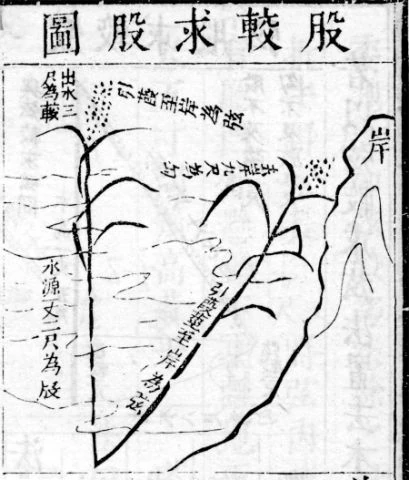 股較求股圖
岸
引葭至岸為弦
去岸九尺為勾
出水三
尺為較
水源一丈二尺為股
引葭至岸為弦